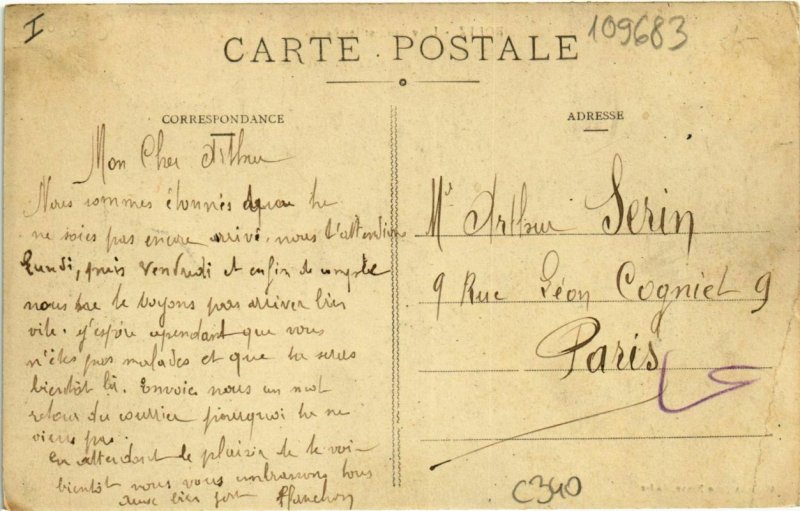 I
109683
CARTE POSTALE
CORRESPONDANCE
ADRESSE
Mon Cher Arthur
Nous sommes étonnés que tu
ne sois pas encore arrivé. nous t'attendions
Lundi, puis Vendredi et enfin de compte
nous ne te voyons pas arriver bien
vite. j'espère cependant que vous
n'êtes pas malades et que tu seras
bientôt là. Envoie nous un mot
retour du courrier pourquoi tu ne
viens pas.
En attendant le plaisir de te voir
bientôt nous vous embrassons tous
deux bien fort
Mr Arthur Serin
9 Rue Léon Cogniet 9
Paris
C340